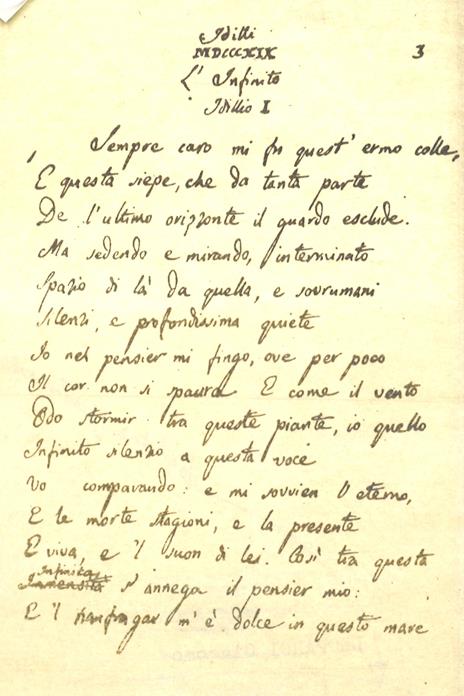 Idilli
MDCCCXIX
3
L' Infinito
Idillio I
Sempre caro mi fu quest' ermo colle,
E questa siepe, che da tanta parte
De l'ultimo orizzonte il guardo esclude.
Ma sedendo e mirando, interminato
Spazio di là da quella, e sovrumani
Silenzi, e profondissima quiete
Io nel pensier mi fingo, ove per poco
Il cor non si spaura. E come il vento
Odo stormir tra queste piante, io quello
Infinito silenzio a questa voce
Vo comparando: e mi sovvien l'eterno,
E le morte stagioni, e la presente
E viva, e 'l suon di lei. Così tra questa
Infinità
Immensità s' annega il pensier mio:
E 'l naufragar m' è dolce in questo mare